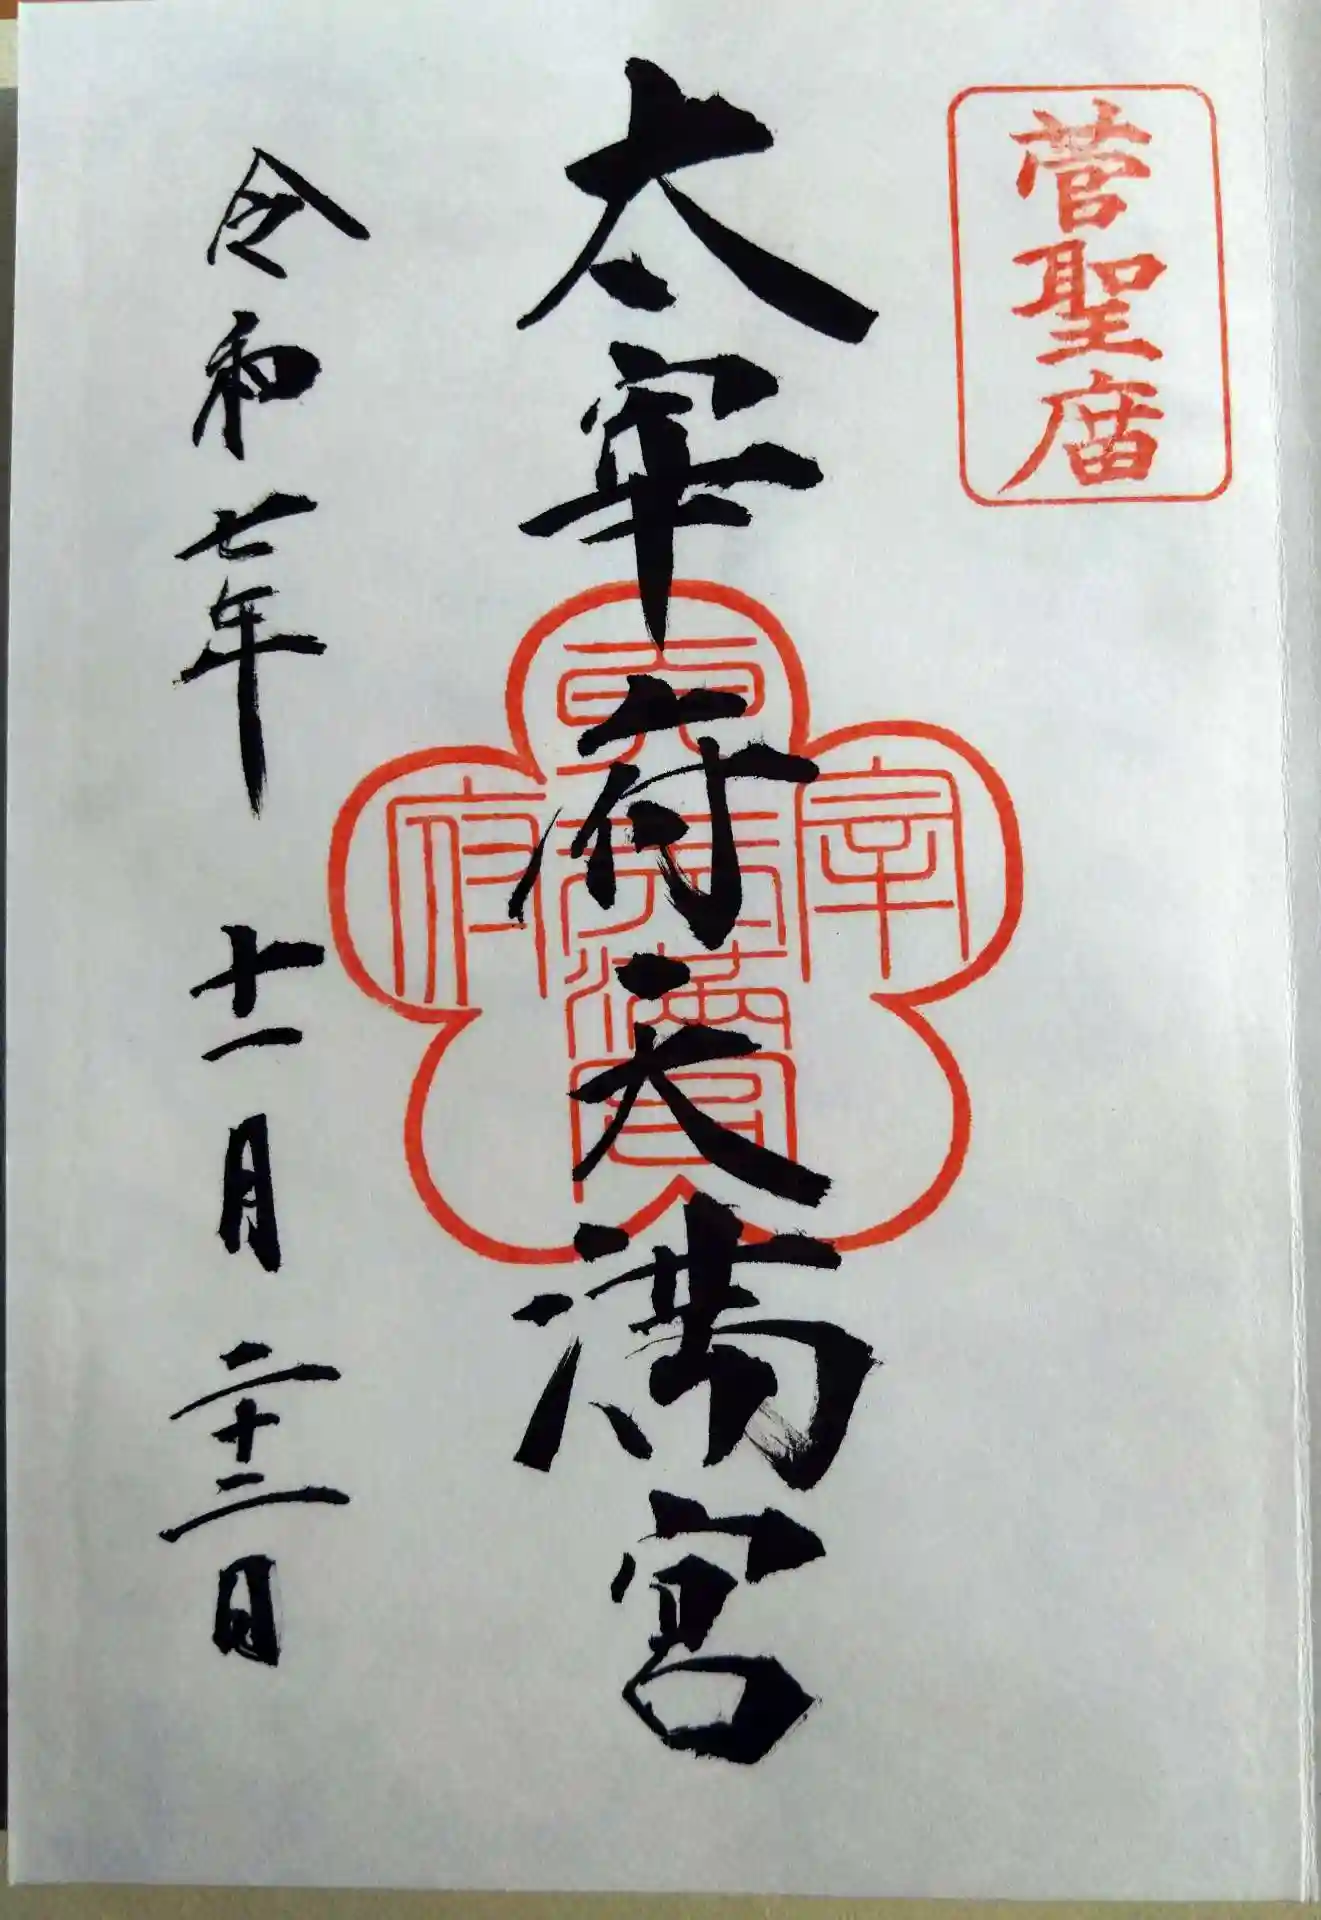 菅聖庿
太宰府天満宮
宰
府
天満宮
令和七年 十一月 二十二日